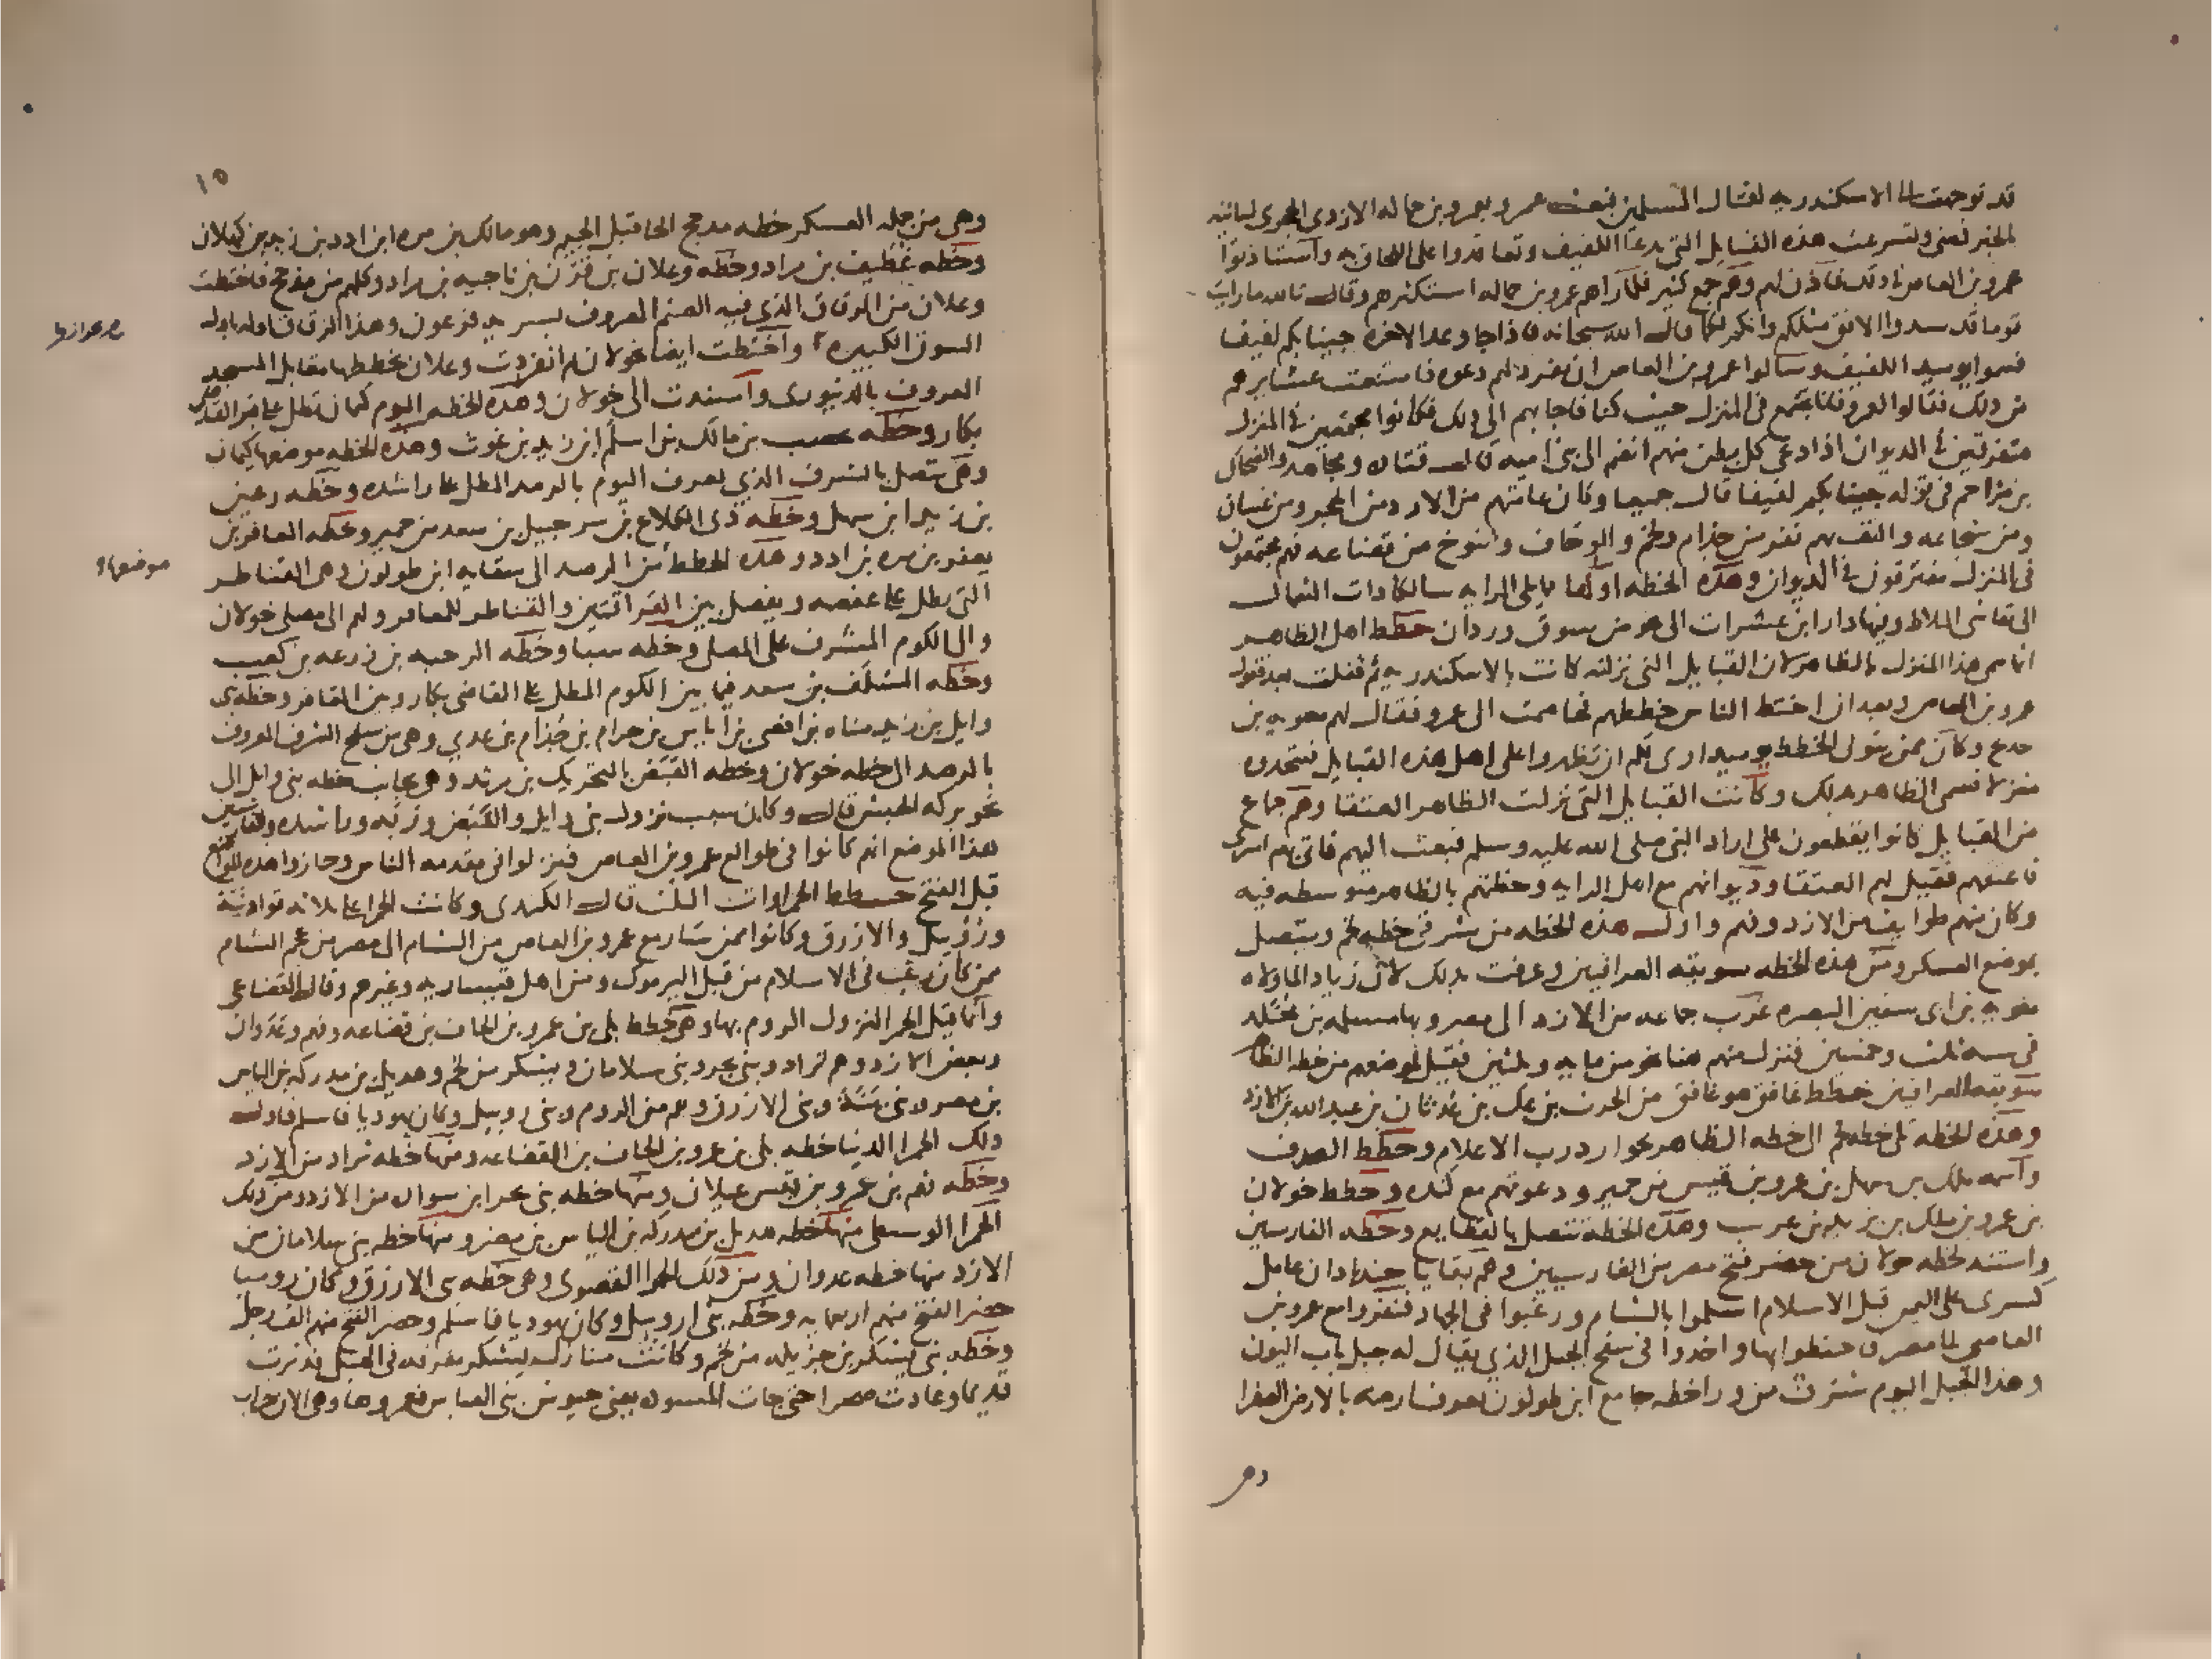 قد توجهت الى الاسكندريه لقتال المسلمين فبعث عمرو بعمرو بن حماله الازدى الحجرى لياتيه
بالخبر فمضى واسرعت هذه القبايل التى تدعا اللفيف وتعاقدوا على اللحاق به واستاذنوا
عمرو بن العاص فى ذلك فاذن لهم وهم جمع كثير فلما راهم عمرو بن حماله استكثرهم وقال تالله ما رايت
قوما قد سدوا الافق مثلكم وانكم لكما قال الله سبحانه فاذا جا وعد الاخره جينا بكم لفيفا
فسموا يوميد اللفيف وسالوا عمرو بن العاص ان يفرد لهم دعوه فامتنعت عشايرهم
من ذلك فقالوا لعمرو فانا نجتمع فى المنزل حيث كنا فاجابهم الى ذلك فكانوا مجتمعين فى المنزل
متفرقين فى الديوان اذا دعى كل بطن منهم انضم الى بنى ابيه قال قتاده ومجاهد والضحاك
بن مزاحم فى قوله جينا بكم لفيفا قال جميعا وكان عامتهم من الازد من الحجر ومن غسان
ومن شجاعه والتف بهم نفر من جذام ولخم والوحاف وتنوخ من قضاعه فهم مجتمعون
فى المنزل متفرقون فى الديوان وهذه الخطه اولها مما يلى الرايه سالكا ذات الشمال
الى نقاشى البلاط وفيها دار ابن عشرات الى نحو من سوق وردان خطط اهل الظاهر
انما سمى هذا المنزل بالظاهر لان القبايل التى نزلته كانت بالاسكندريه ثم قفلت بعد قفول
عمرو بن العاص وبعد ان اختط الناس خططهم فخاصمت الى عمرو فقال لهم معويه بن
حديج وكان ممن يتولى الخطط يوميد ارى لكم ان تظهروا على اهل هذه القبايل فتتخذوه
منزلا فسمى الظاهر بذلك وكانت القبايل التى نزلت الظاهر العتقا وهم جماع
من القبايل كانوا يقطعون على من اراد النبى صلى الله عليه وسلم فبعث اليهم فاتى بهم اسرى
فاعتقهم فقيل لهم العتقا وديوانهم مع اهل الرايه وخطتهم بالظاهر متوسطه فيه
وكان فيهم طوايف من الازد وفهم واول هذه الخطه من شرقى خطه لخم ويتصل
بموضع العسكر ومن هذه الخطه سويقه العراقيين وعرفت بذلك لان زياد لما ولاه
معويه بن ابى سفين البصره غرب جماعه من الازد الى مصر وبها مسلمه بن مخلد
فى سنه ثلث وخمسين فنزل منهم هنا نحو من مايه وثلثين فقيل لموضعهم من خطه الظاهر
سويقه العراقيين خطط غافق هو غافق بن الحرث بن عك بن عدثان بن عبد الله بن الازد
وهذه الخطه تلى خطه لخم الى خطه الظاهر بجوار درب الاعلام وخطط الصدف
واسمه ملك بن سهل بن عمرو بن قيس بن حمير ودعوتهم مع كنده وخطط خولان
بن عمرو بن ملك بن زيد بن عريب وهذه الخطه تتصل بالقضايع وخطه الفارسيين
واستند لخطه خولان من حضر فتح مصر من الفارسيين وهم بقايا جند باذان عامل
كسرى على اليمن قبل الاسلام اسلموا بالشام ورغبوا فى الجهاد فنفروا مع عمرو بن
العاصى الى مصر فاختطوا بها واخذوا فى سفح الجبل الذى يقال له جبل باب البون
وهذا الجبل اليوم شرقى من ورا خطه جامع ابن طولون تعرف ارضه بالارض الصفرا
وهى
١٥
وهى من جمله العسكر خطه مذحج بالحا قبل الجيم وهو مالك بن مره ابن ادد بن زيد بن كهلان
وخطه غطيف بن مراد وخطه وعلان بن قرن بن ناجيه بن مراد وكلهم من مذحج فاختطت
وعلان من الزقاق الذى فيه الصنم المعروف بسريه فرعون وهذا الزقاق اوله باب
السوق الكبيره واختطت ايضا بخولان ثم انفردت وعلان بخططها مقابل المسجد
المعروف بالدينورى واسندت الى خولان وهذه الخطه اليوم كيمان تطل على قبر القاضى
بكار وخطه يحصب بن مالك بن اسلم ابن زيد بن غوث وهذه الخطه موضعها كيمان
وهى تتصل بالشرف الذى يعرف اليوم بالرصد المطل على راشده وخطه رعين
موضعها
بن زيد ابن سهل وخطه ذى الكلاع بن شرحبيل بن سعد من حمير وخطه المعافر بن
يعفر بن مره بن ادد وهذه الخطط من الرصد الى سقايه ابن طولون وهى القناطر
التى تطل على عفصه ويفصل بين القرافتين والقناطر للمعافر ولهم الى مصلى خولان
والى الكوم المشرف على المصلى وخطه سبا وخطه الرحبه بن زرعه بن كعب
وخطه السلف بن سعد فيما بين الكوم المطل على القاضى بكار وبين المعافر وخطه بنى
وايل بن زيد مناه بن افصى بن اياس بن حرام بن جذام بن عدى وهى من سفح الشرف المعروف
بالرصد الى خطه خولان وخطه القبض بالتحريك بن مرثد وهى بجانب خطه بنى وايل الى
نحو بركه الحبش قال وكان سبب نزول بنى وايل والقبض وريه وراشده والفارسيين
هذا الموضع انهم كانوا فى طوالع عمرو بن العاص فنزلوا فى مقدمه الناس وحازوا هذه المواضع
قبل الفتح خطط الحمراوات الثلث قال الكندى وكانت الحمرا على ثلاثه بنو نبه
وروبيل والازرق وكانوا ممن سار مع عمرو بن العاص من الشام الى مصر من عجم الشام
ممن كان رغب فى الاسلام من قبل اليرموك ومن اهل قيساريه وغيرهم وقال القضاعى
وانما قيل الحمرا لنزول الروم بها وهى خطط بلى بن عمرو بن الحاف بن قضاعه وفهم وعدوان
وبعض الازد وهم ثراد وبنى بحر وبنى سلامان ويشكر من لخم وهذيل بن مدركه بن الياس
بن مضر وبنى نبه وبنى الازرق وهم من الروم وبنى روبيل وكان يهوديا فاسلم فاول
ذلك الحمرا الدنيا خطه بلى بن عمرو بن الحاف بن القضاعه ومنها خطه ثراد من الازد
وخطه فهم بن عمرو بن قيس عيلان ومنها خطه بنى بحر ابن سواده من الازد ومن ذلك
الحمرا الوسطى منها خطه هذيل بن مدركه بن الياس بن مضر ومنها خطه بنى سلامان من
الازد منها خطه عدوان ومن ذلك الحمرا القصوى وهى خطه بنى الازرق وكان روميا
حضر الفتح منهم اربعمايه وخطه بنى روبيل وكان يهوديا فاسلم وحضر الفتح منهم الف رجل
وخطه بنى يشكر بن جزيله من لخم وكانت منازل يشكر مفرقه فى الجبل فدثرت
قديما وعادت صحرا حتى جات المسوده يعنى جيوش بنى العباس فعمروها وهى الان خراب